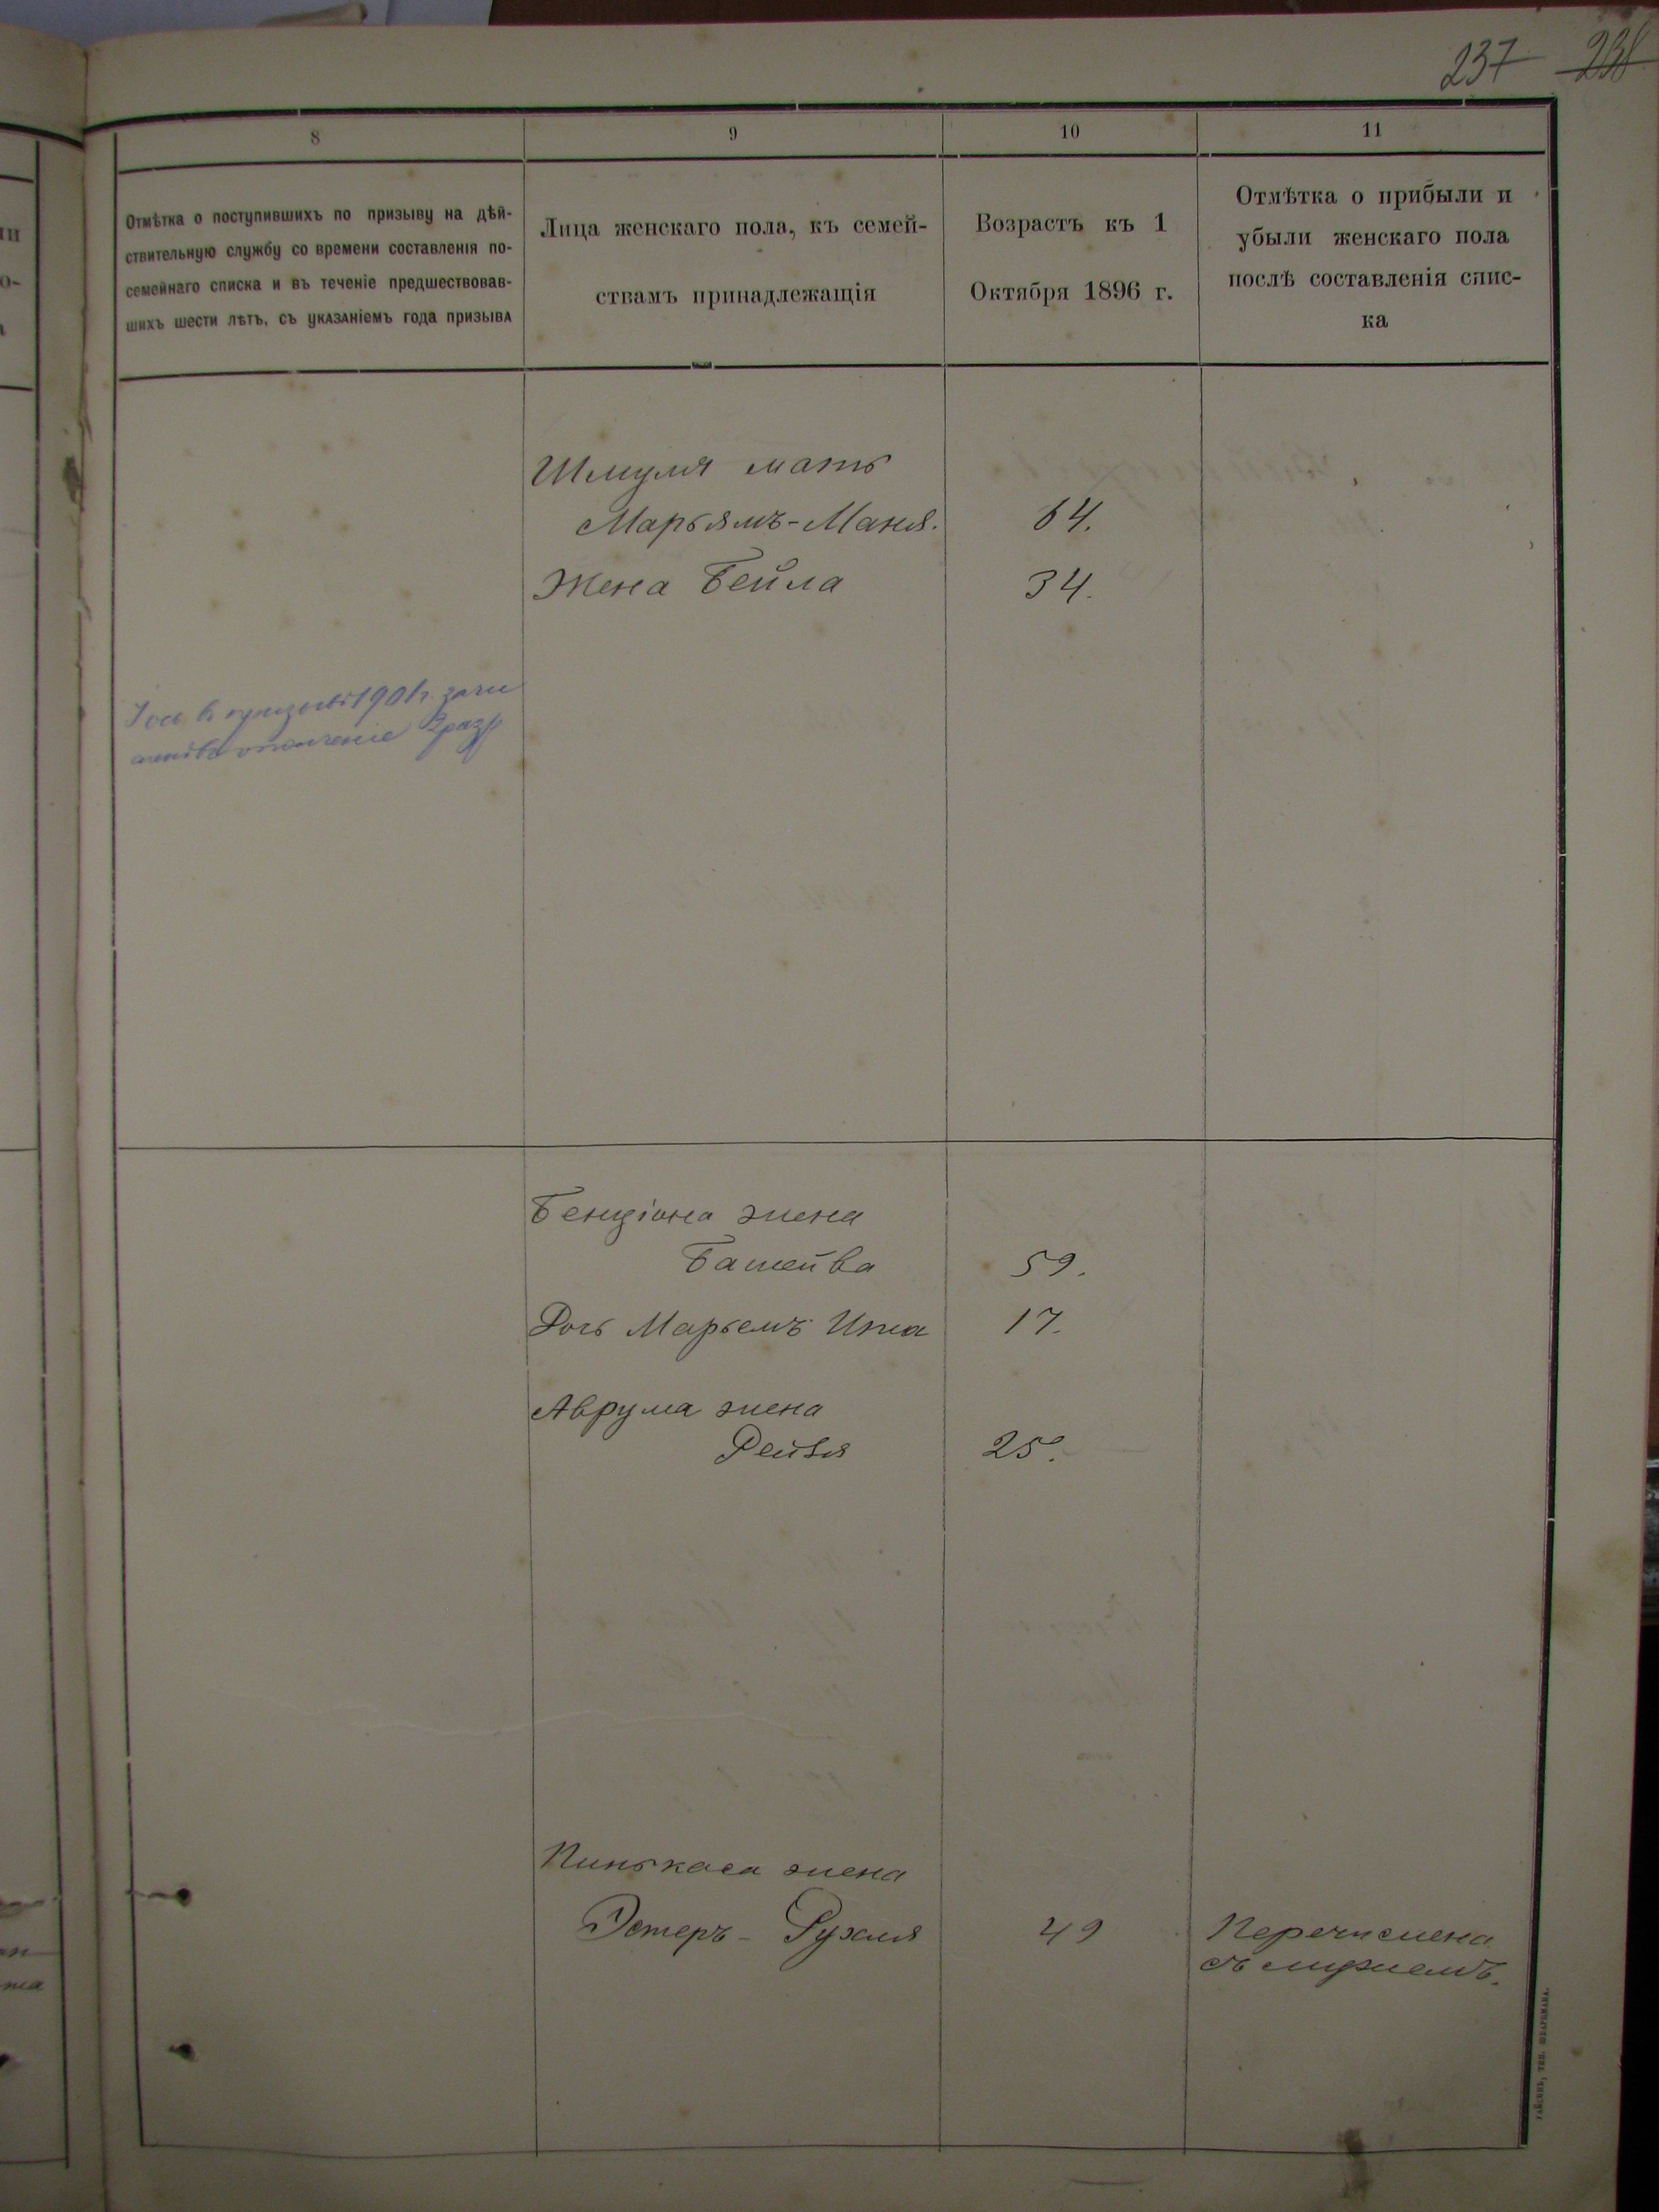 237 238
8
9
10
11
Отмѣтка о поступившихъ по призыву на дѣй-
ствительную службу со времени составленія по-
семейнаго списка и въ теченіе предшествовав-
шихъ шести лѣтъ, съ указаніемъ года призыва
Лица женскаго пола, къ семей-
ствамъ принадлежащія
Возрастъ къ 1
Октября 1896 г.
Отмѣтка о прибыли и
убыли женскаго пола
послѣ составленія спис-
ка
Шмуля мать
Марьямъ-Маня. 64.
Жена Бейла 34.
Іось въ призывѣ 1901 г. зачи
ополченіе 2 разр
Бенціона жена
Башейва 59.
Дочь Марьемъ 17.
Аврума жена
Рейзя 25.
Пинькаса жена
Эстеръ-Рухля 49
Перечислена
съ мужемъ.
ГАЙСИНЪ, ТИП. ШВАРЦМАНА.